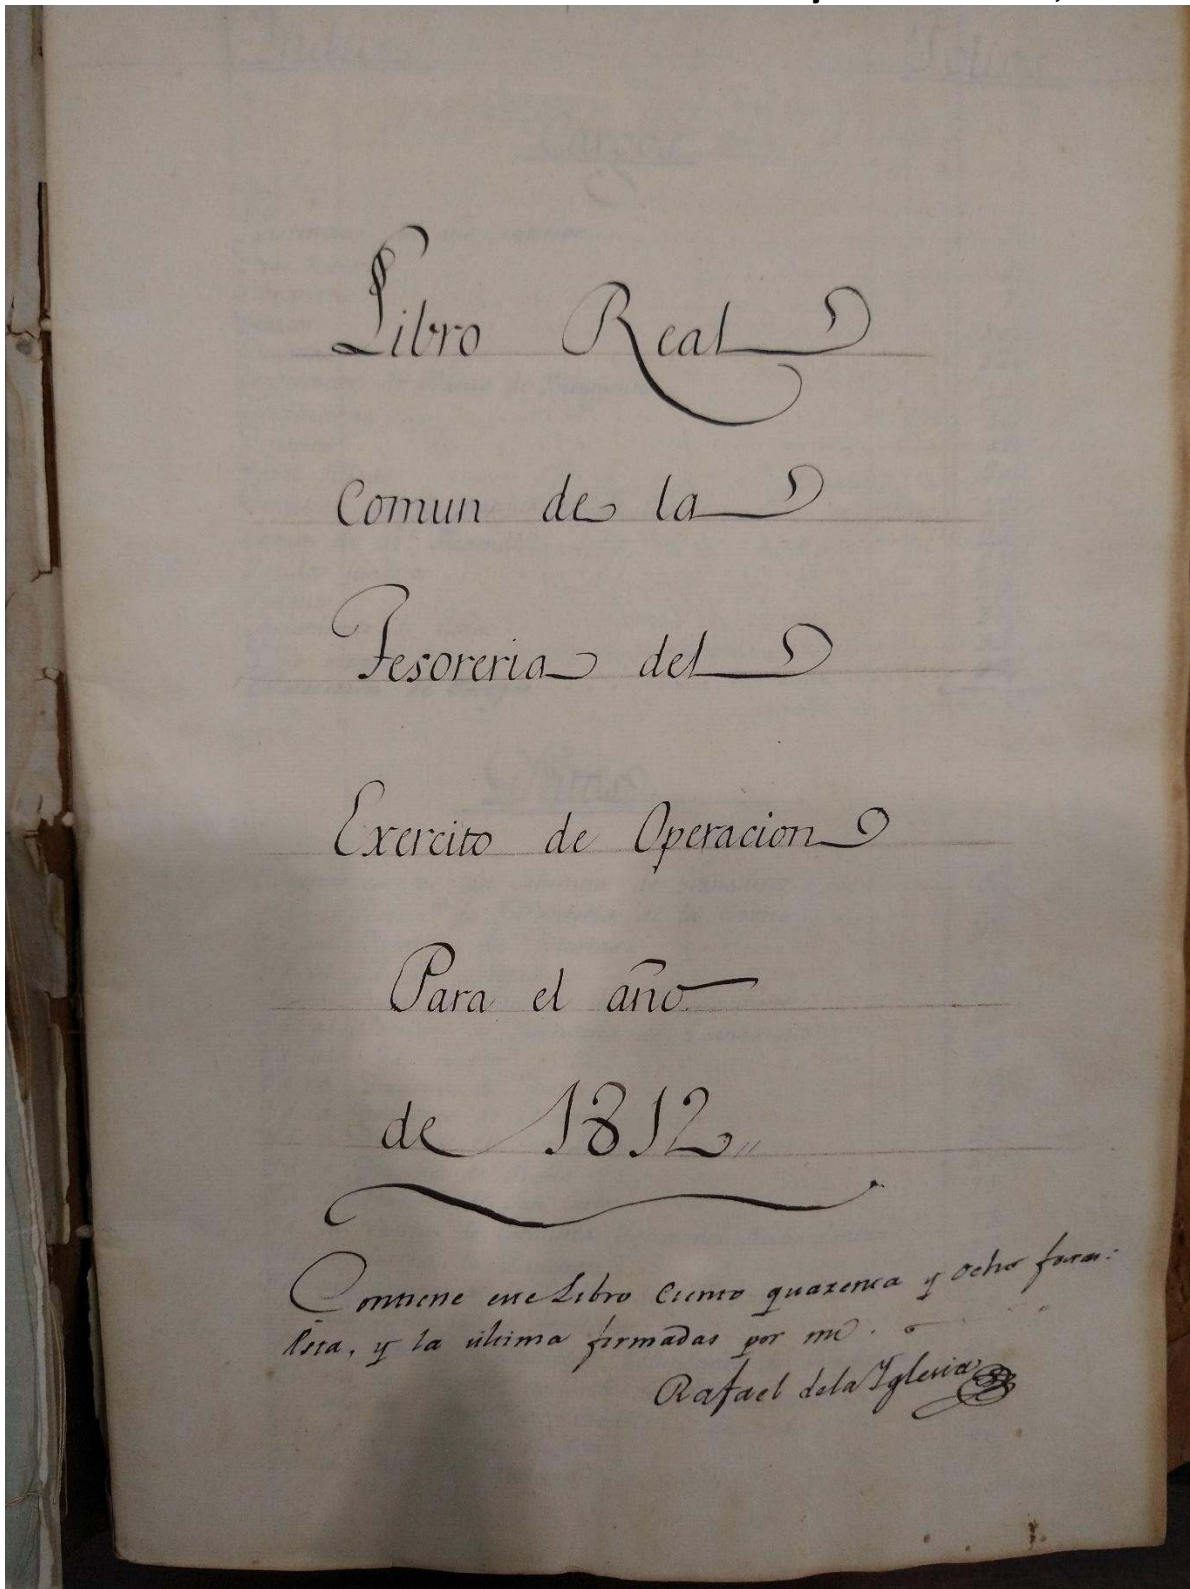 Libro Real
Comun de la
Tesoreria del
Exercito de Operacion
Para el año
de 1812,,
Contiene este Libro ciento quarenta y ocho foxas:
Esta, y la ultima firmadas por mi.
Rafael dela Yglesia